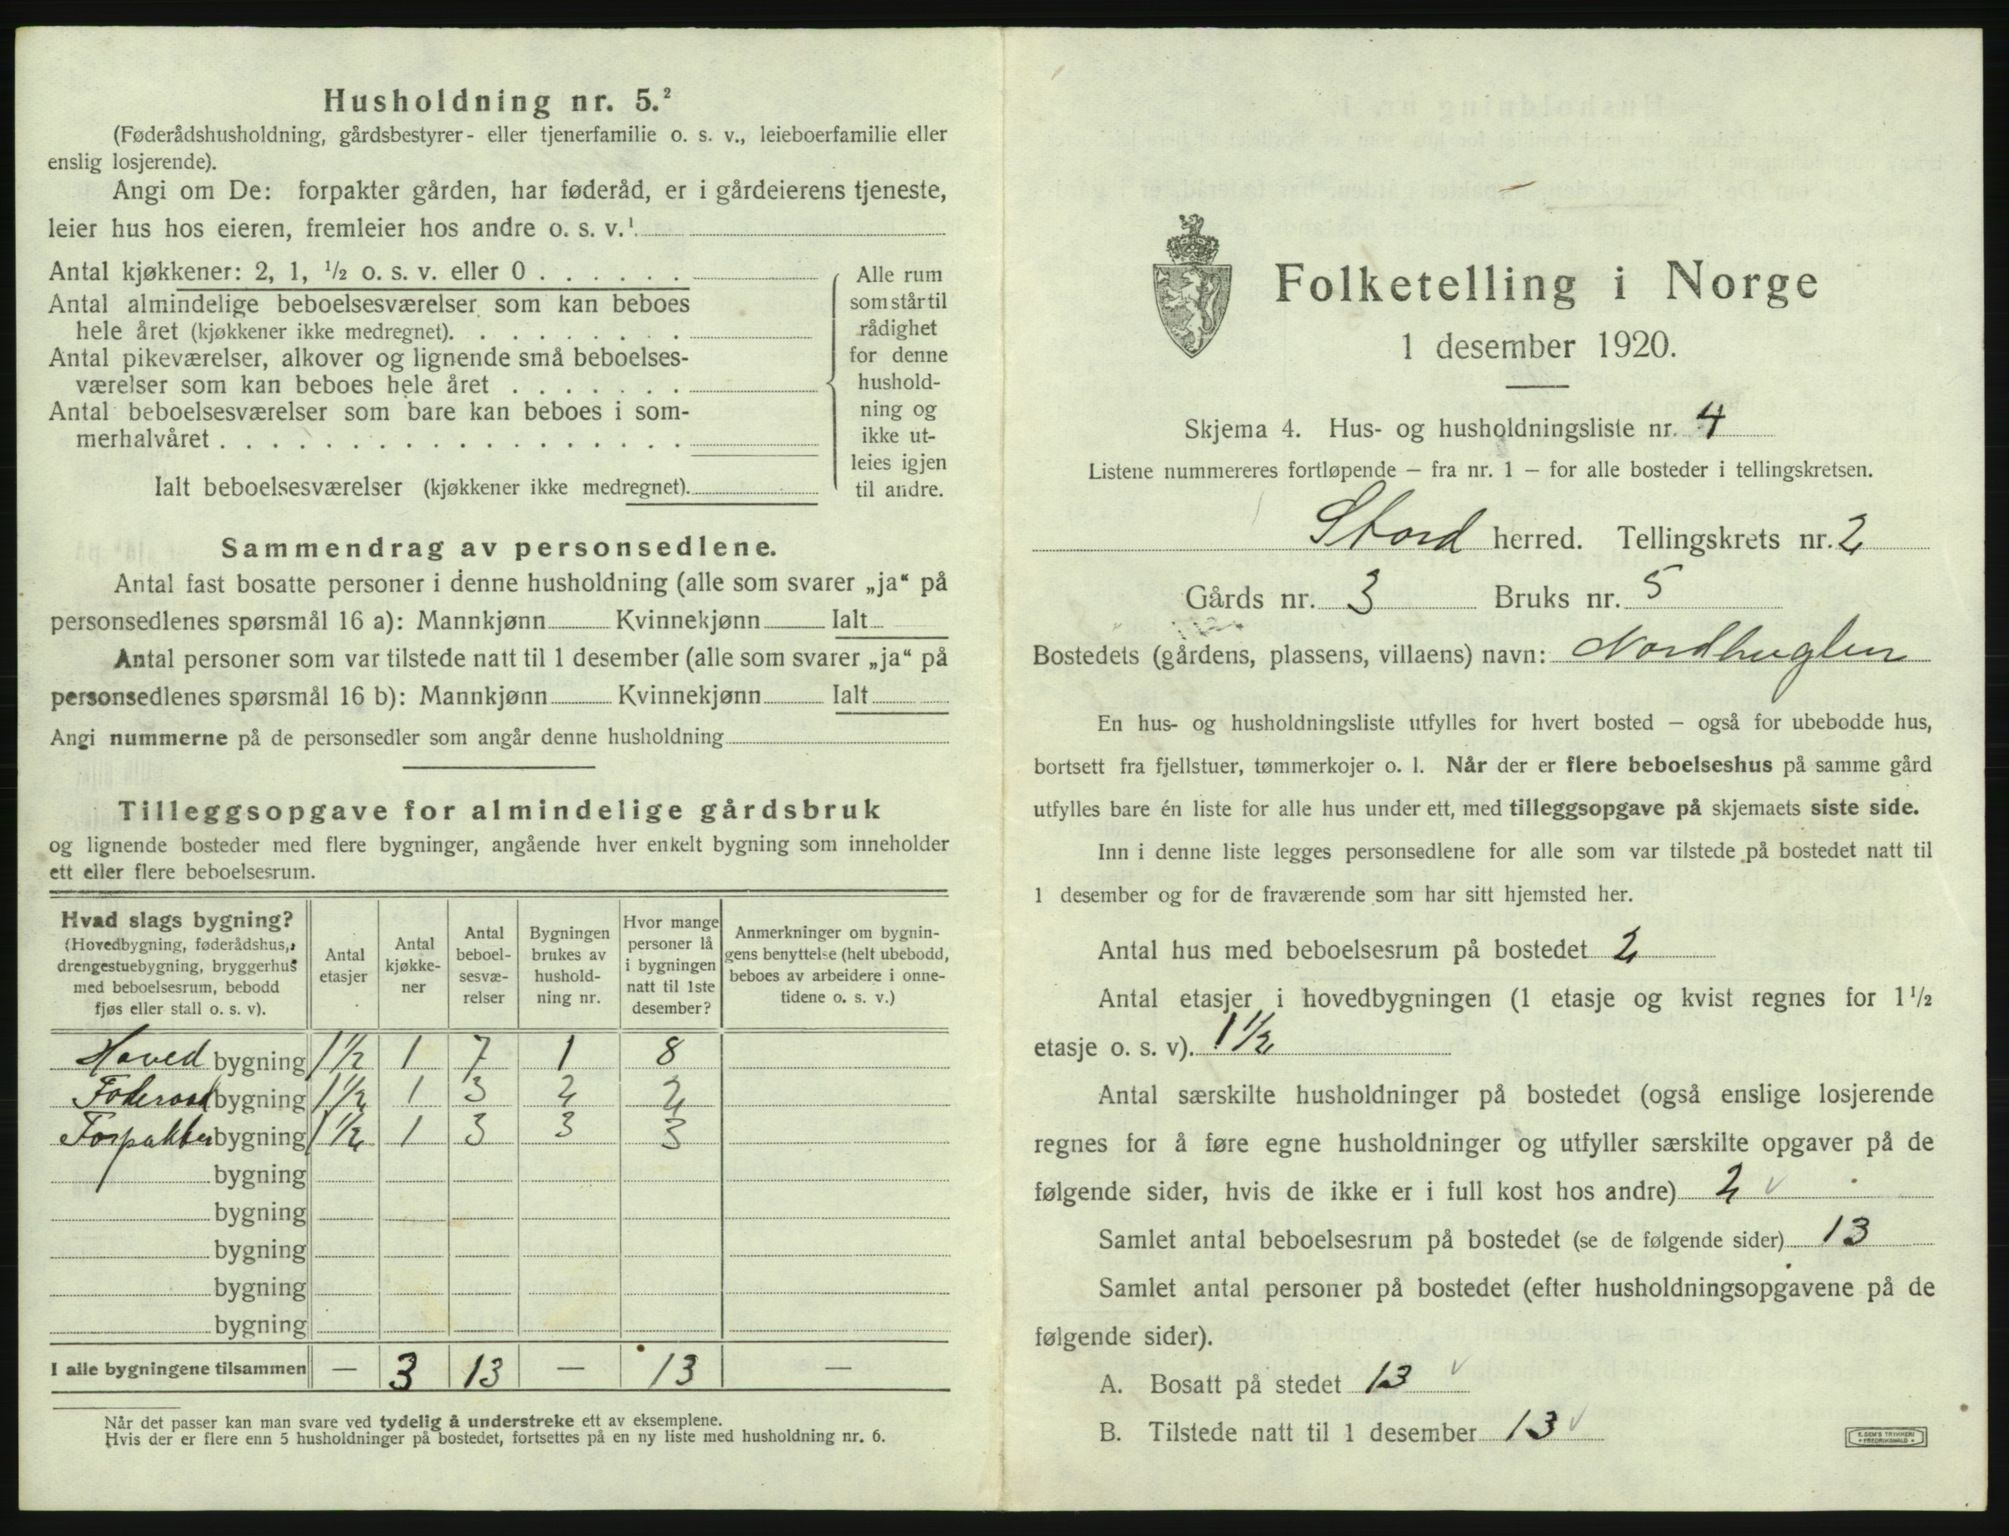 Husholdning nr. 5.²
(Føderådshusholdning, gårdsbestyrer- eller tjenerfamilie o. s. v., leieboerfamilie eller
enslig losjerende).
Angi om De: forpakter gården, har føderåd, er i gårdeierens tjeneste,
leier hus hos eieren, fremleier hos andre o. s. v.¹
Antal kjøkkener: 2, 1, ½ o. s. v. eller 0
Antal almindelige beboelsesværelser som kan beboes
hele året (kjøkkener ikke medregnet).
Antal pikeværelser, alkover og lignende små beboelses-
værelser som kan beboes hele året
Antal beboelsesværelser som bare kan beboes i som-
merhalvåret
Ialt beboelsesværelser (kjøkkener ikke medregnet).
Alle rum
som står til
rådighet
for denne
hushold-
ning og
ikke ut-
leies igjen
til andre.
Sammendrag av personsedlene.
Antal fast bosatte personer i denne husholdning (alle som svarer „ja“ på
personsedlenes spørsmål 16 a): Mannkjønn Kvinnekjønn Ialt
Antal personer som var tilstede natt til 1 desember (alle som svarer „ja“ på
personsedlenes spørsmål 16 b): Mannkjønn Kvinnekjønn Ialt
Angi nummerne på de personsedler som angår denne husholdning
Tilleggsopgave for almindelige gårdsbruk
og lignende bosteder med flere bygninger, angående hver enkelt bygning som inneholder
ett eller flere beboelsesrum.
Hvad slags bygning?
(Hovedbygning, føderådshus,
drengestuebygning, bryggerhus
med beboelsesrum, bebodd
fjøs eller stall o. s. v).
Antal
etasjer
Antal
kjøkke-
ner
Antal
beboel-
sesvæ-
relser
Bygningen
brukes av
hushold-
ning nr.
Hvor mange
personer lå
i bygningen
natt til 1ste
desember?
Anmerkninger om bygnin-
gens benyttelse (helt ubebodd,
beboes av arbeidere i onne-
tidene o. s. v.)
Hoved bygning 1½ 1 7 1 8
Foderaad bygning 1½ 1 3 2 2
Forpakter bygning 1½ 1 3 3 3
bygning
bygning
bygning
bygning
bygning
I alle bygningene tilsammen — 3 13 — 13 —
Når det passer kan man svare ved tydelig å understreke ett av eksemplene.
Hvis der er flere enn 5 husholdninger på bostedet, fortsettes på en ny liste med husholdning nr. 6.
Folketelling i Norge
1 desember 1920.
Skjema 4. Hus- og husholdningsliste nr. 4
Listene nummereres fortløpende – fra nr. 1 – for alle bosteder i tellingskretsen.
Stord herred. Tellingskrets nr. 2
Gårds nr. 3 Bruks nr. 5
Bostedets (gårdens, plassens, villaens) navn: Nordhuglen
En hus- og husholdningsliste utfylles for hvert bosted – også for ubebodde hus,
bortsett fra fjellstuer, tømmerkojer o. l. Når der er flere beboelseshus på samme gård
utfylles bare én liste for alle hus under ett, med tilleggsopgave på skjemaets siste side.
Inn i denne liste legges personsedlene for alle som var tilstede på bostedet natt til
1 desember og for de fraværende som har sitt hjemsted her.
Antal hus med beboelsesrum på bostedet 2
Antal etasjer i hovedbygningen (1 etasje og kvist regnes for 1½
etasje o. s. v). 1½
Antal særskilte husholdninger på bostedet (også enslige losjerende
regnes for å føre egne husholdninger og utfyller særskilte opgaver på de
følgende sider, hvis de ikke er i full kost hos andre) 2
Samlet antal beboelsesrum på bostedet (se de følgende sider) 13
Samlet antal personer på bostedet (efter husholdningsopgavene på de
følgende sider).
A. Bosatt på stedet 13
B. Tilstede natt til 1 desember 13
E. SEM'S TRYKKERI
FREDRIKSHALD